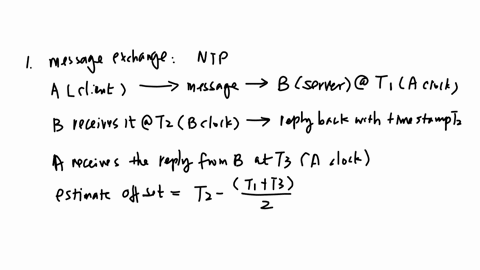 1. message exchange: NTP
A (client) → message → B (server) @ T1 (A clock)
B receives it @ T2 (B clock) → reply back with timestamp T2
A receives the reply from B at T3 (A clock)
estimate offset = T2 - (T1+T3)/2